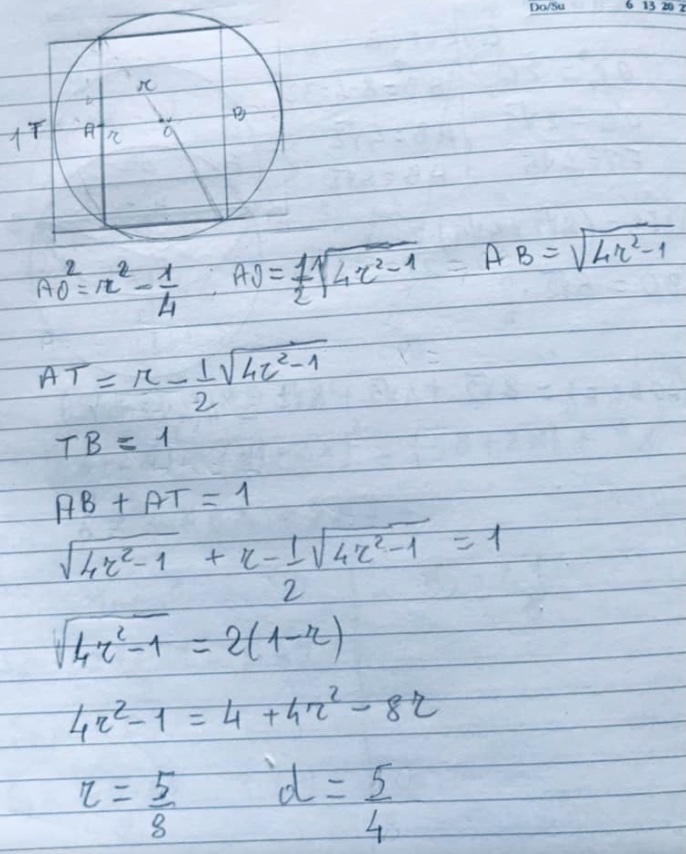 Do/Su 6 13 20 2
r
1 T A r O B
AO² = r² - 1/4 ; AO = 1/2 √(4r²-1) = AB = √(4r²-1)
AT = r - 1/2 √(4r²-1)
TB = 1
AB + AT = 1
√(4r²-1) + r - 1/2 √(4r²-1) = 1
√(4r²-1) = 2(1-r)
4r²-1 = 4 + 4r² - 8r
r = 5/8 d = 5/4